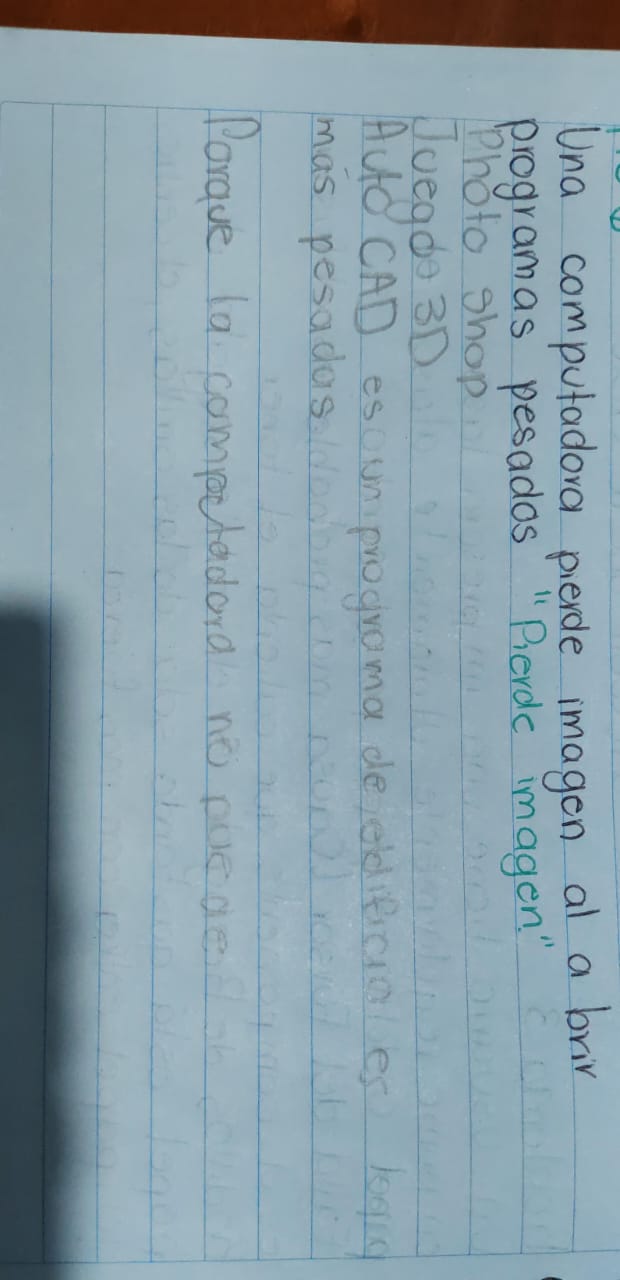 Una computadora pierde imagen al a brir
programas pesados "Pierde imagen."
Photo shop
Juegdo 3D
Auto CAD es un programa de edificial es
más pesadas
Porque la computadora no puede